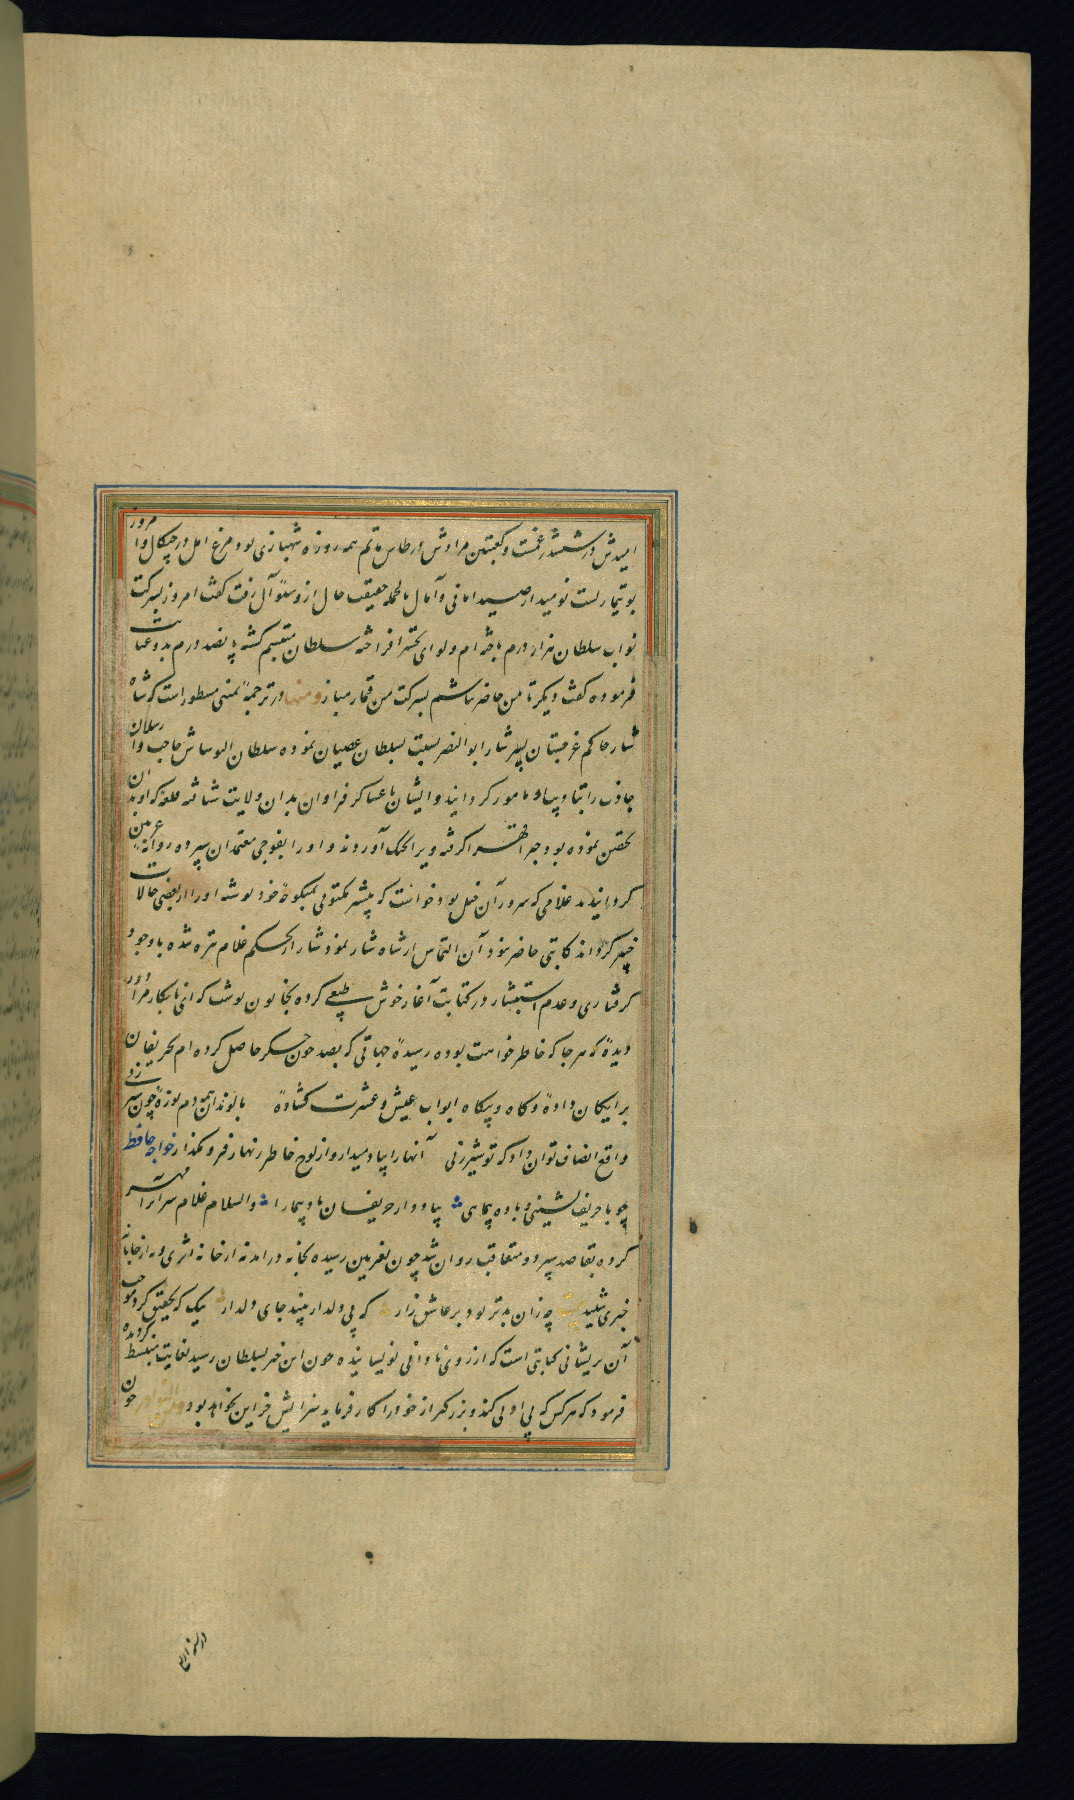 امیدش در ششدر غمست و کعبتین مرادش در طاس ماتم همه روزه شهبازی بود مرغ امل در چنکال وامروز
بوتیماریست نومید از صید امانی و آمال بالجمله حقیقت حال ازو سئوال رفت کفت امروز ببرکت
نواب سلطان هزار درم باخته ام ولوای تحسر افراخته سلطان متبسم کشته پانصد درم بدو عنایت
فرموده کفت دیکر تا من حاضر نباشم ببرکت من قمار مباز ومنها در ترجمه یمنی مسطور است که شاه
شار حاکم غرجستان پسر شار ابوالنصر نسبت بسلطان عصیان نموده سلطان التونتاش حاجب وارسلان
جاذب را بتادیب او مامور کردانید وایشان با عساکر فراوان بدان ولایت شتافته قلعه که او بدان
تحصن نموده بود جبرا قهرا کرفته ویرا بچنک آوردند و اورا بفوجی معتمدان سپرده روانه غزنین
کردانیدند غلامی که سرور آن خیل بود خواست که پیشتر مکتوبی بمنکوحه خود نوشته اورا از بعضی حالات
خبیر کرداند کاتبی حاضر نبود آن التماس از شاه شار نمود شار از تحکم غلام تیره شده با وجود
کرفتاری و عدم استبشار در کتابت آغاز خوش طبعی کرده بخاتون نوشت که ای نابکار مرا دور
دیده که هر جا که خاطر خواست بوده رسیده جهاتی که بصد خون جکر حاصل کرده ام بحریفان
برایکان داده و کاه و بیکاه ابواب عیش و عشرت کشاده با لوندان همه دم بوزه چون شیر زدی
واقع انصاف توان داد که تو شیرزنی آنها را بیاد میدار و از لوح خاطر زنهار فرو مکذار خواجه حافظ
چو با حریف نشینی و باده پیمایی بیاد دار حریفان باد پیما را والسلام غلام سرآنرا مهر
کرده بقاصد سپرد و متعاقب روان شد چون بغزنین رسیده بخانه درآمد نه از خانه اثری و نه از جانانه
خبری شنید چه زان بدتر بود بر عاشق زار که بی دلدار بیند جای دلدار نیک که تحقیق کرد موجب
آن پریشانی کتابتی است که از روی نادانی نویسانیده چون این خبر بسلطان رسید بغایت منبسط کردیده
فرمود که هر کس که بی ادبی کند و بزرکتر از خود را کار فرماید سزایش غیر این نخواهد بود چون